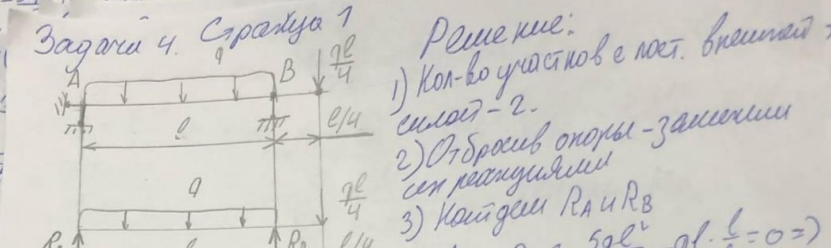 Задача 4. Страница 1
q
A
B
ql/4
l
l/4
q
ql/4
l/4
Решение:
1) Кол-во участков с пост. внешней
силой - 2.
2) Отбросив опоры - заменим
их реакциями
3) Найдем RA и RB
5ql²
ql · l/2 = 0 =>